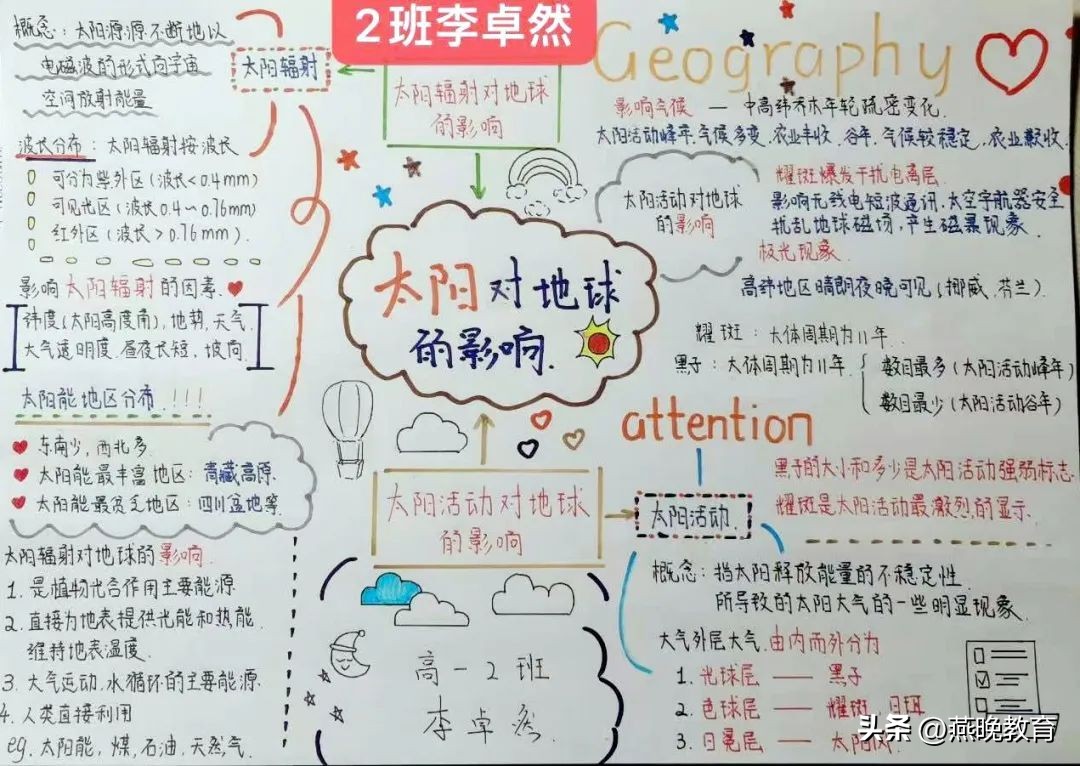 2班李卓然
概念：太阳源源不断地以
电磁波的形式向宇宙
空间放射能量
太阳辐射
太阳辐射对地球
的影响
Geography
波长分布：太阳辐射按波长
可分为紫外区（波长<0.4mm）
可见光区（波长0.4～0.76mm）
红外区（波长>0.76mm）.
影响太阳辐射的因素.
纬度(太阳高度角),地势,天气.
大气透明度.昼夜长短,坡向
太阳能地区分布.!!!
东南少，西北多.
太阳能最丰富地区：青藏高原.
太阳能最贫乏地区：四川盆地等.
太阳辐射对地球的影响.
1. 是植物光合作用主要能源.
2. 直接为地表提供光能和热能.
维持地表温度.
3. 大气运动,水循环的主要能源.
4. 人类直接利用
eg. 太阳能，煤,石油,天然气.
太阳对地球
的影响.
太阳活动对地球
的影响
高一2班
李卓然.
影响气候 — 中高纬乔木年轮疏密变化.
太阳活动峰年.气候多变.农业丰收.谷年.气候较稳定,农业歉收.
太阳活动对地球
的影响
耀斑爆发干扰电离层.
影响无线电短波通讯.太空宇航器安全
扰乱地球磁场,产生磁暴现象.
极光现象.
高纬地区晴朗夜晚可见(挪威.芬兰).
耀斑：大体周期为11年.
黑子：大体周期为11年.
数目最多(太阳活动峰年)
数目最少(太阳活动谷年)
attention
黑子的大小和多少是太阳活动强弱标志.
耀斑是太阳活动最激烈的显示.
太阳活动.
概念：指太阳释放能量的不稳定性.
所导致的太阳大气的一些明显现象.
大气外层大气.由内而外分为
1. 光球层 — 黑子
2. 色球层 — 耀斑,日珥
3. 日冕层 — 太阳风.
头条@燕晚教育